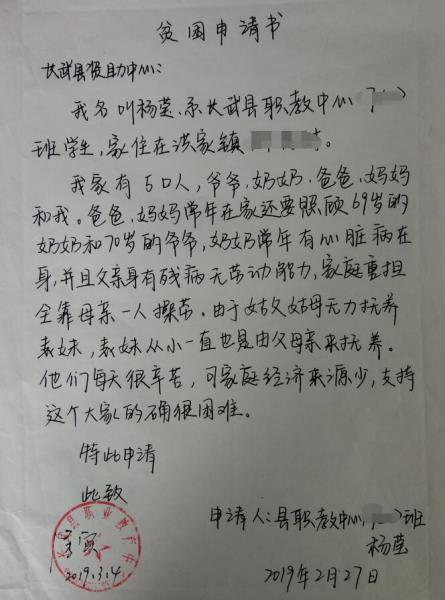 贫困申请书
长武县资助中心:
我名叫杨莹,系长武县职教中心
班学生,家住在洪家镇
我家有5口人,爷爷、奶奶、爸爸、妈妈
和我。爸爸、妈妈常年在家还要照顾69岁的
奶奶和70岁的爷爷,奶奶常年有心脏病在
身,并且父亲身有残病无劳动能力,家庭重担
全靠母亲一人操劳。由于姑父姑母无力抚养
表妹,表妹从小一直也是由父母亲来抚养。
他们每天很辛苦,可家庭经济来源少,支持
这个大家的确很困难。
特此申请
此致
申请人:县职教中心 班
杨莹
2019年2月27日
2019.3.4